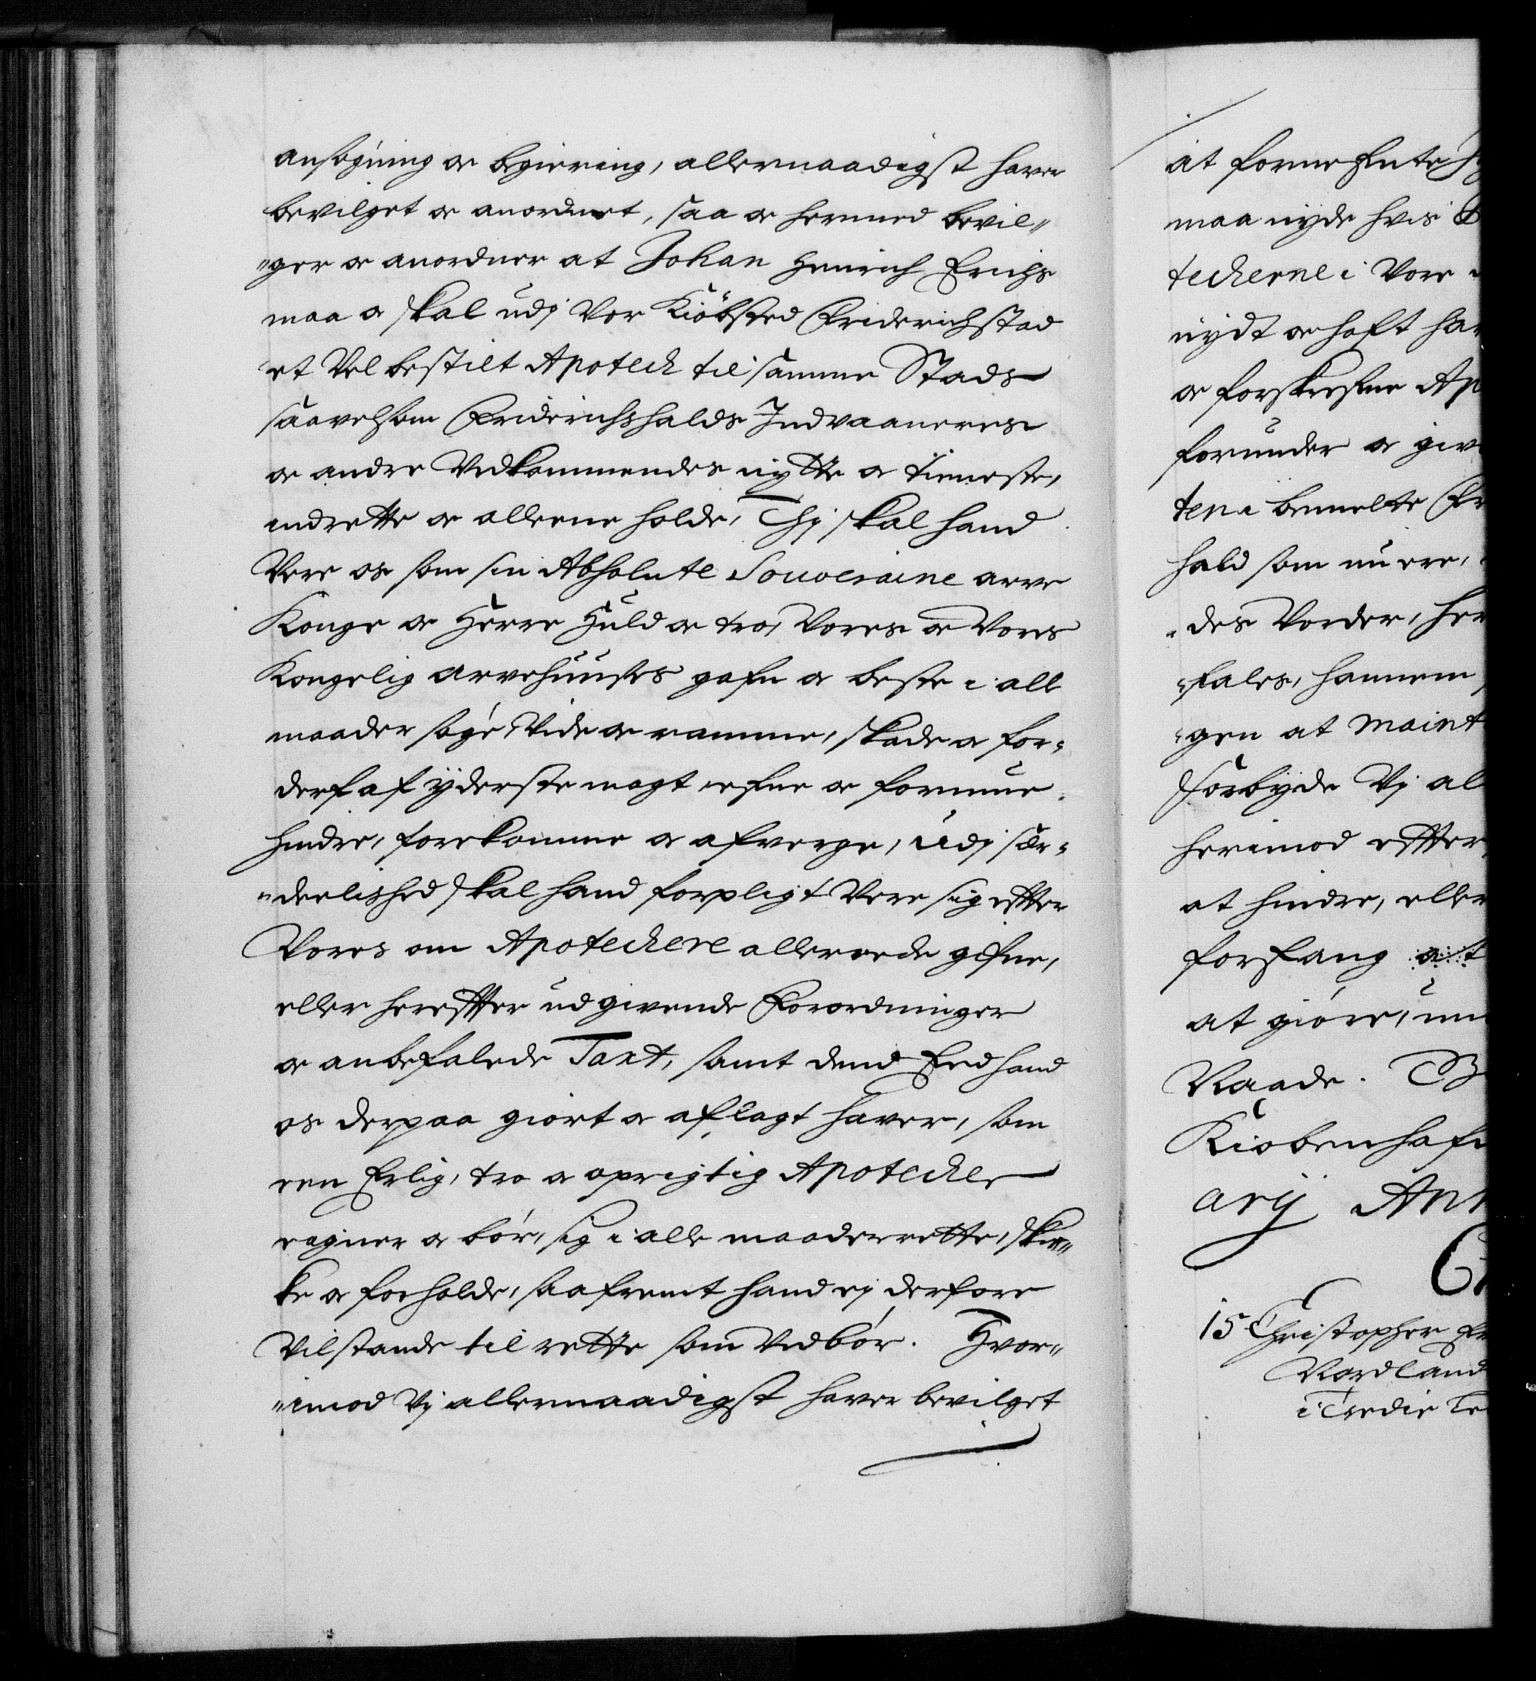 ansøgning og begiering, allernaadigst haver
bevilget og anordnet, saa og hermed bevil-
ger og anordner at Johan Henrich Erichs
maa og skal udj Vor Kiöbsted Friderichstad
et Vel bestilt Apoteck til samme Stads
saavelsom Friderichshalds Indvaaneres
og andre Vedkommendes nytte og tieneste,
indrette og alleene holde, Thj skal hand
Vere os som sin Absolute Souveraine arve
Konge og Herre Huld og tro, Vores og Vores
Kongelig arvehuuses gafn og beste i all
maader søge Vide og ramme, skade og for-
derf af yderste magt, efne og formue
hindre, forekomme og afverge, Udj sær-
deelished skal hand forpligt Vere sig effter
Vores om Apoteckere allereede gifne,
eller hereffter udgivende Forordninger
og anbefalede Taxt, samt dend Eed hand
os derpaa giort og aflagt haver, som
een Erlig, tro og oprigtig Apotecker
eigner og bør, sig i alle maader rette, skic-
ke og forholde, saafremt hand ej derfore
Vil stande til rette som vedbør. Hvor-
imod Vj allernaadigst haver bevilget
at forne
maa nyde hvis
teckerne i Vore
nydt og haft
og forskrefne
forunder og
ten i bemelte
hald som nu ere,
des Vorder,
fales, hannem
gen at
Forbyde Vj al
herimod effter
at hindre, eller
forfang
at giøre,
Naade.
Kiøbenhafn
arij
15 Christopher
Nordland
i Tredie